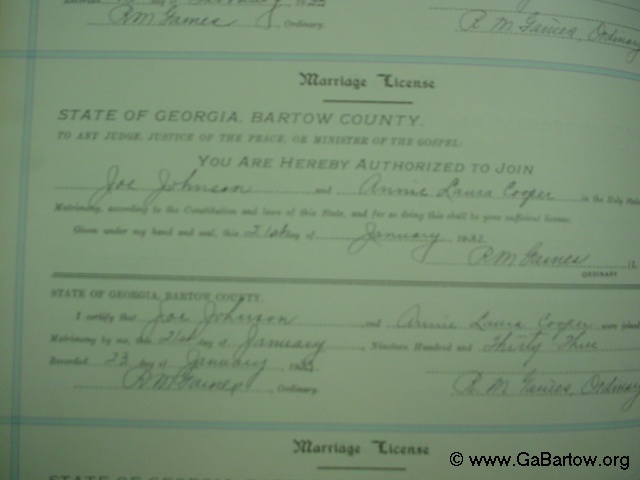 R M Gaines, Ordinary.
R. M Gaines, Ordinary
Marriage License
STATE OF GEORGIA, BARTOW COUNTY.
TO ANY JUDGE, JUSTICE OF THE PEACE, OR MINISTER OF THE GOSPEL:
YOU ARE HEREBY AUTHORIZED TO JOIN
Joe Johnson and Annie Laura Cooper in the Holy
Matrimony, according to the Constitution and laws of this State, and for so doing this shall be your sufficient license.
Given under my hand and seal, this 21st day of January
R M Gaines
ORDINARY
STATE OF GEORGIA, BARTOW COUNTY.
I certify that Joe Johnson and Annie Laura Cooper were
Matrimony by me, this 21st day of January, Nineteen Hundred and Thirty Three
Recorded 23 day of January, 1933
R M Gaines, Ordinary. R. M Gaines, Ordinary
Marriage License
STATE OF GEORGIA, BARTOW COUNTY.
© www.GaBartow.org